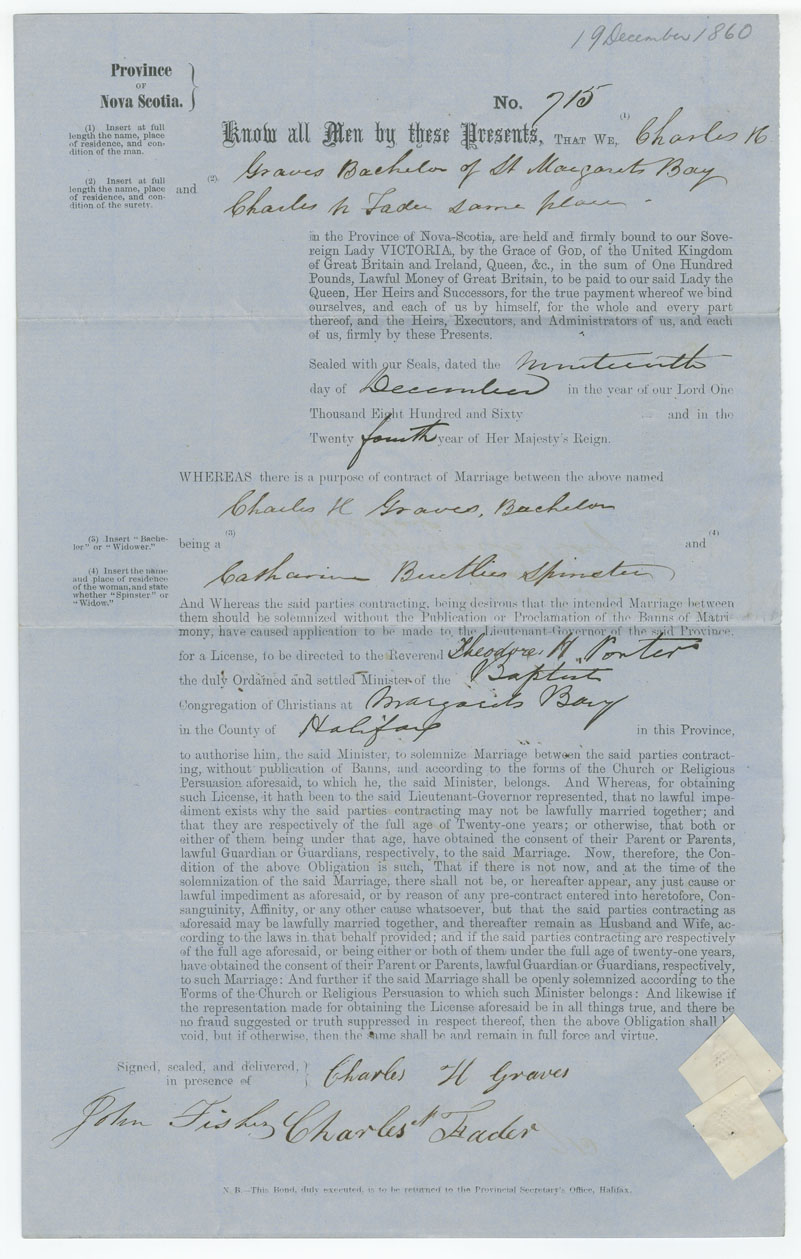 19 December 1860
Province
OF
Nova Scotia.
No. 715
(1) Insert at full
length the name, place
of residence, and con-
dition of the man.
Know all Men by these Presents, THAT WE, (1) Charles H
Graves Bachelor of St Margarets Bay
(2) Insert at full
length the name, place
of residence, and con-
dition of the surety.
and (2). Charles N Fader same place
in the Province of Nova-Scotia, are held and firmly bound to our Sove-
reign Lady VICTORIA, by the Grace of GOD, of the United Kingdom
of Great Britain and Ireland, Queen, &c., in the sum of One Hundred
Pounds, Lawful Money of Great Britain, to be paid to our said Lady the
Queen, Her Heirs and Successors, for the true payment whereof we bind
ourselves, and each of us by himself, for the whole and every part
thereof, and the Heirs, Executors, and Administrators of us, and each
of us, firmly by these Presents.
Sealed with our Seals, dated the Nineteenth
day of December in the year of our Lord One
Thousand Eight Hundred and Sixty and in the
Twenty fourth year of Her Majesty's Reign.
WHEREAS there is a purpose of contract of Marriage between the above named
Charles H Graves, Bachelor
(3) Insert "Bache-
lor" or "Widower."
being a (3) and (4)
(4) Insert the name
and place of residence
of the woman, and state
whether "Spinster" or
"Widow."
Catharine Spinster
And Whereas the said parties contracting, being desirous that the intended Marriage between
them should be solemnized without the Publication or Proclamation of the Banns of Matri-
mony, have caused application to be made to the Lieutenant-Governor of the said Province,
for a License, to be directed to the Reverend Theodore H Porter
the duly Ordained and settled Minister of the Baptist
Congregation of Christians at Margarets Bay
in the County of Halifax in this Province,
to authorise him, the said Minister, to solemnize Marriage between the said parties contract-
ing, without publication of Banns, and according to the forms of the Church or Religious
Persuasion aforesaid, to which he, the said Minister, belongs. And Whereas, for obtaining
such License, it hath been to the said Lieutenant-Governor represented, that no lawful impe-
diment exists why the said parties contracting may not be lawfully married together; and
that they are respectively of the full age of Twenty-one years; or otherwise, that both or
either of them being under that age, have obtained the consent of their Parent or Parents,
lawful Guardian or Guardians, respectively, to the said Marriage. Now, therefore, the Con-
dition of the above Obligation is such, That if there is not now, and at the time of the
solemnization of the said Marriage, there shall not be, or hereafter appear, any just cause or
lawful impediment as aforesaid, or by reason of any pre-contract entered into heretofore, Con-
sanguinity, Affinity, or any other cause whatsoever, but that the said parties contracting as
aforesaid may be lawfully married together, and thereafter remain as Husband and Wife, ac-
cording to the laws in that behalf provided; and if the said parties contracting are respectively
of the full age aforesaid, or being either or both of them under the full age of twenty-one years,
have obtained the consent of their Parent or Parents, lawful Guardian or Guardians, respectively,
to such Marriage: And further if the said Marriage shall be openly solemnized according to the
Forms of the Church or Religious Persuasion to which such Minister belongs: And likewise if
the representation made for obtaining the License aforesaid be in all things true, and there be
no fraud suggested or truth suppressed in respect thereof, then the above Obligation shall
void, but if otherwise, then the same shall be and remain in full force and virtue.
Signed, sealed, and delivered,
in presence of
Charles H Graves
John Fisher Charles N Fader
N. B.—This Bond, duly executed, is to be returned to the Provincial Secretary's Office, Halifax.